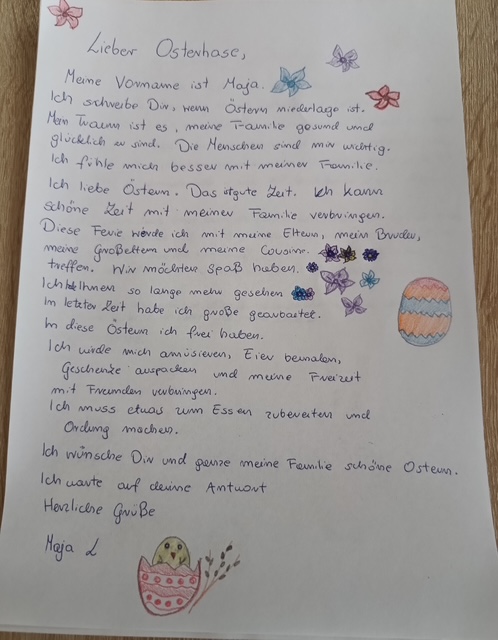 Lieber Osterhase,
Meine Vorname ist Maja.
Ich schreibe Dir, wenn Östern niederlage ist.
Mein Traum ist es, meine Familie gesund und
glücklich zu sind. Die Menschen sind mir wichtig.
Ich fühle mich besser mit meiner Familie.
Ich liebe Östern. Das ist gute Zeit. Ich kann
schöne Zeit mit meiner Familie verbringen.
Diese Ferie werde ich mit meine Eltern, mein Bruder,
meine Großeltern und meine Cousine
treffen. Wir möchten Spaß haben.
Ich Ihnen so lange mehr gesehen
In letzter Zeit habe ich große gearbeitet.
In diese Östern ich frei haben.
Ich würde mich amüsieren, Eier bemalen,
Geschenke auspacken und meine Freizeit
mit Freunden verbringen.
Ich muss etwas zum Essen zubereiten und
Ordung machen.
Ich wünsche Dir und ganze meine Familie schöne Ostern.
Ich warte auf deine Antwort
Herzliche Grüße
Maja L